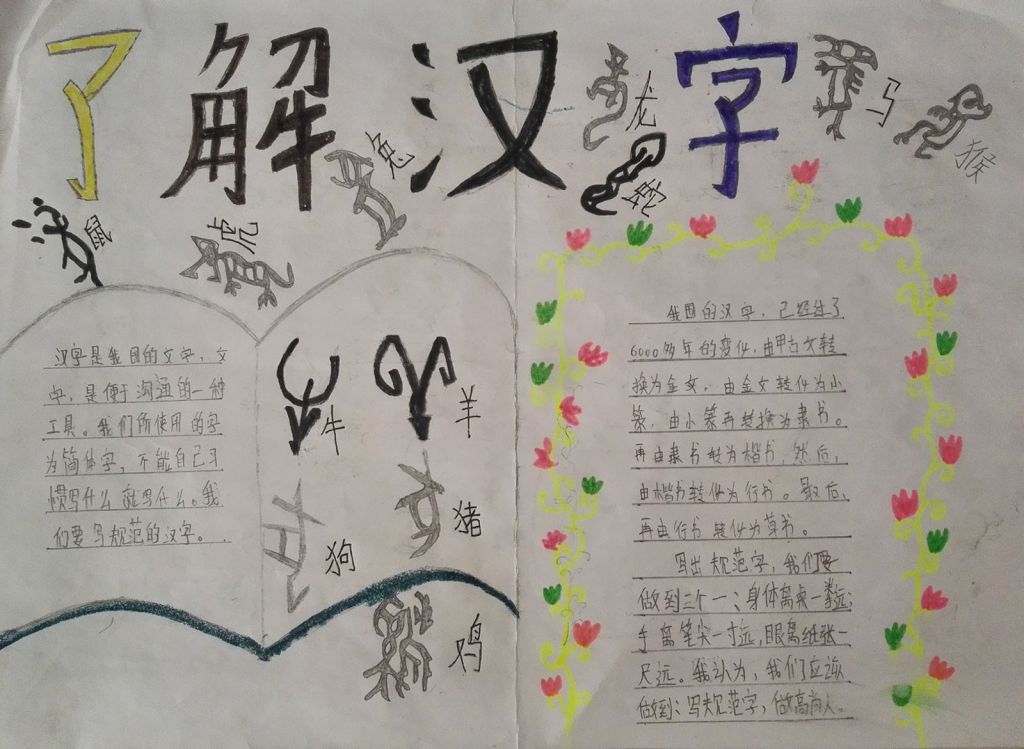 了解汉字
龙
马
猴
兔
蛇
鼠
虎
汉字是我国的文字，文
字，是便于沟通的一种
工具。我们所使用的字
为简体字，不能自己习
惯写什么就写什么。我
们要写规范的汉字。
牛
羊
狗
猪
鸡
我国的汉字，已经过了
6000多年的变化，由甲古文转
换为金文，由金文转化为小
篆，由小篆再转换为隶书。
再由隶书转为楷书，然后，
由楷书转化为行书。最后，
再由行书转化为草书。
写出规范字，我们要
做到三个一：身体离桌一拳远；
手离笔尖一寸远，眼离纸张一
尺远。我认为，我们应该
做到：写规范字，做高尚人。